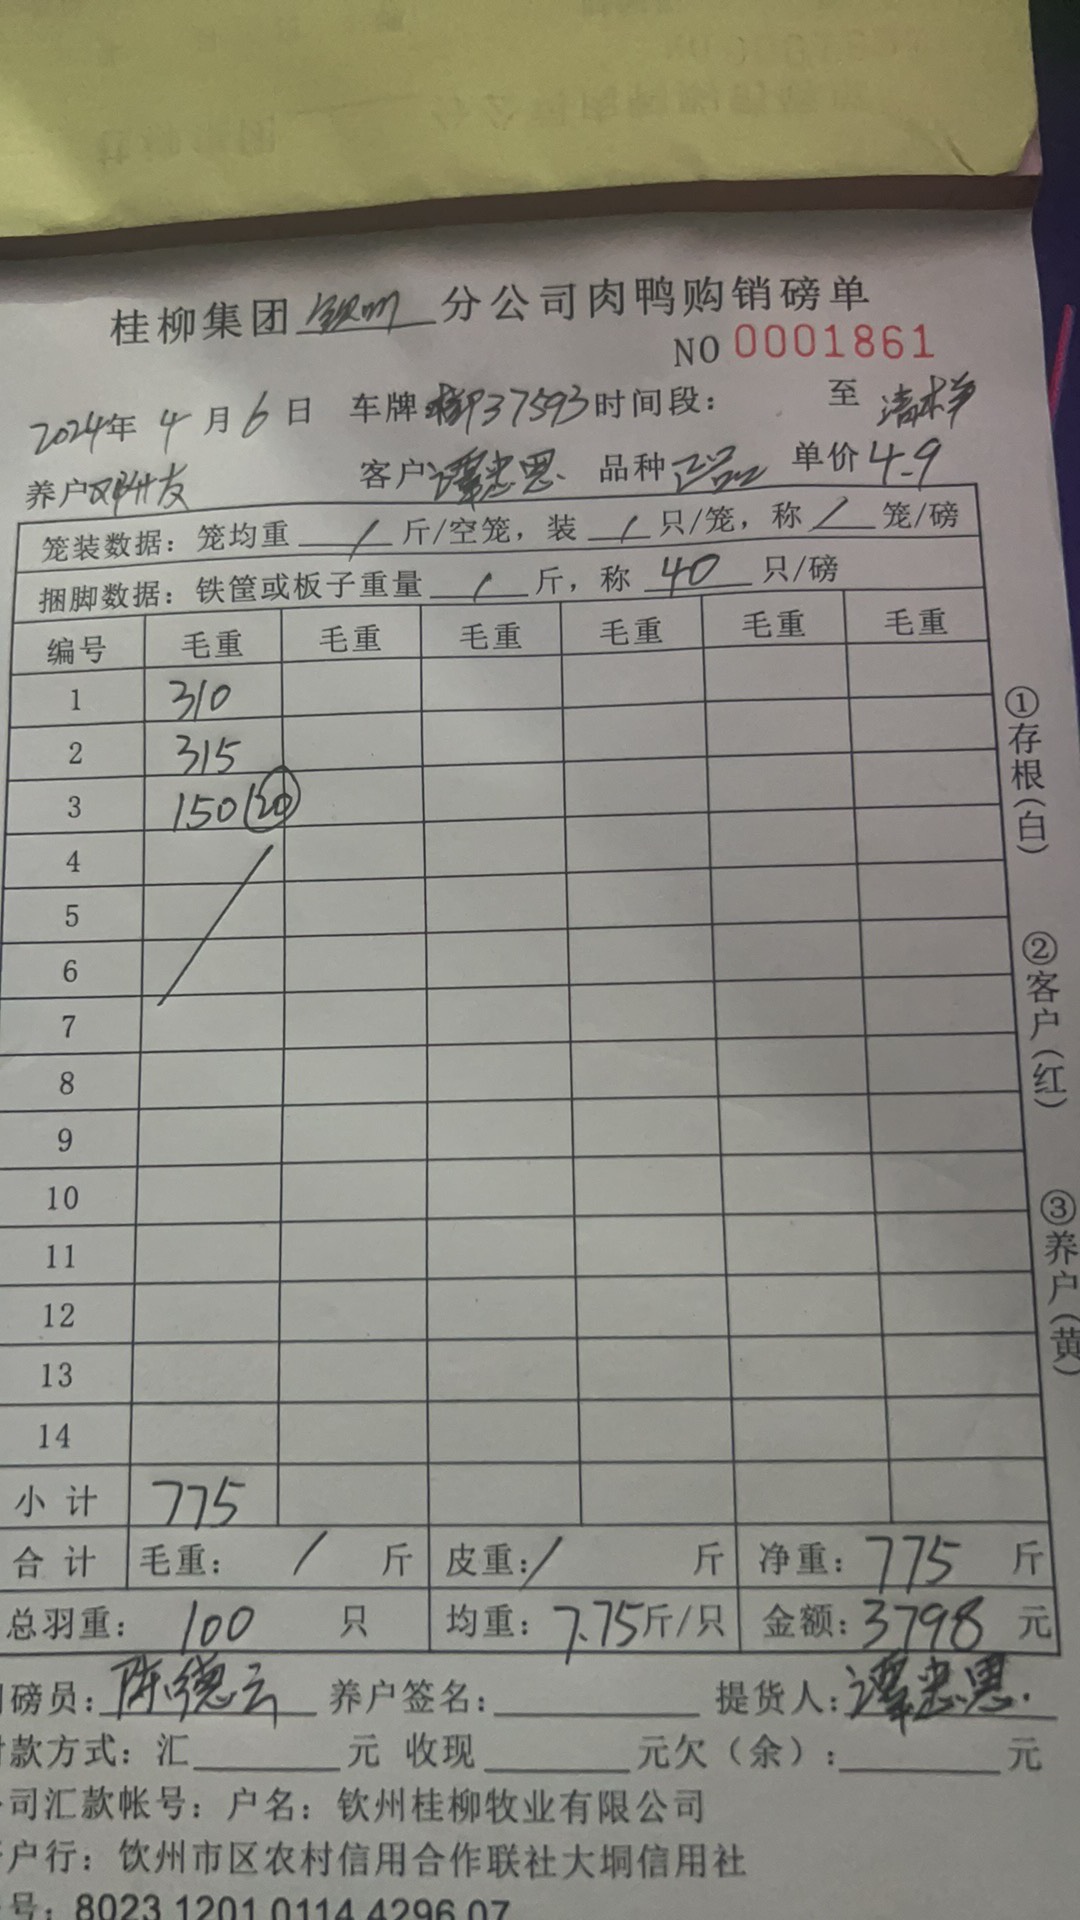 桂柳集团 钦州 分公司肉鸭购销磅单
NO 0001861
2024年 4 月 6 日 车牌 37593 时间段: 至
养户 客户 谭忠恩 品种 正品 单价 4.9
笼装数据: 笼均重 / 斤/空笼, 装 / 只/笼, 称 / 笼/磅
捆脚数据: 铁筐或板子重量 / 斤, 称 40 只/磅
编号 毛重 毛重 毛重 毛重 毛重 毛重
1 310
2 315
3 150 (20)
4
5
6
7
8
9
10
11
12
13
14
小计 775
合计 毛重: / 斤 皮重: / 斤 净重: 775 斤
总羽重: 100 只 均重: 7.75 斤/只 金额: 3798 元
磅员: 陈德云 养户签名: 提货人: 谭忠恩
款方式: 汇 元 收现 元欠(余): 元
司汇款帐号: 户名: 钦州桂柳牧业有限公司
户行: 饮州市区农村信用合作联社大垌信用社
号: 8023 1201 0114 4296 07
①存根(白)
②客户(红)
③养户(黄)